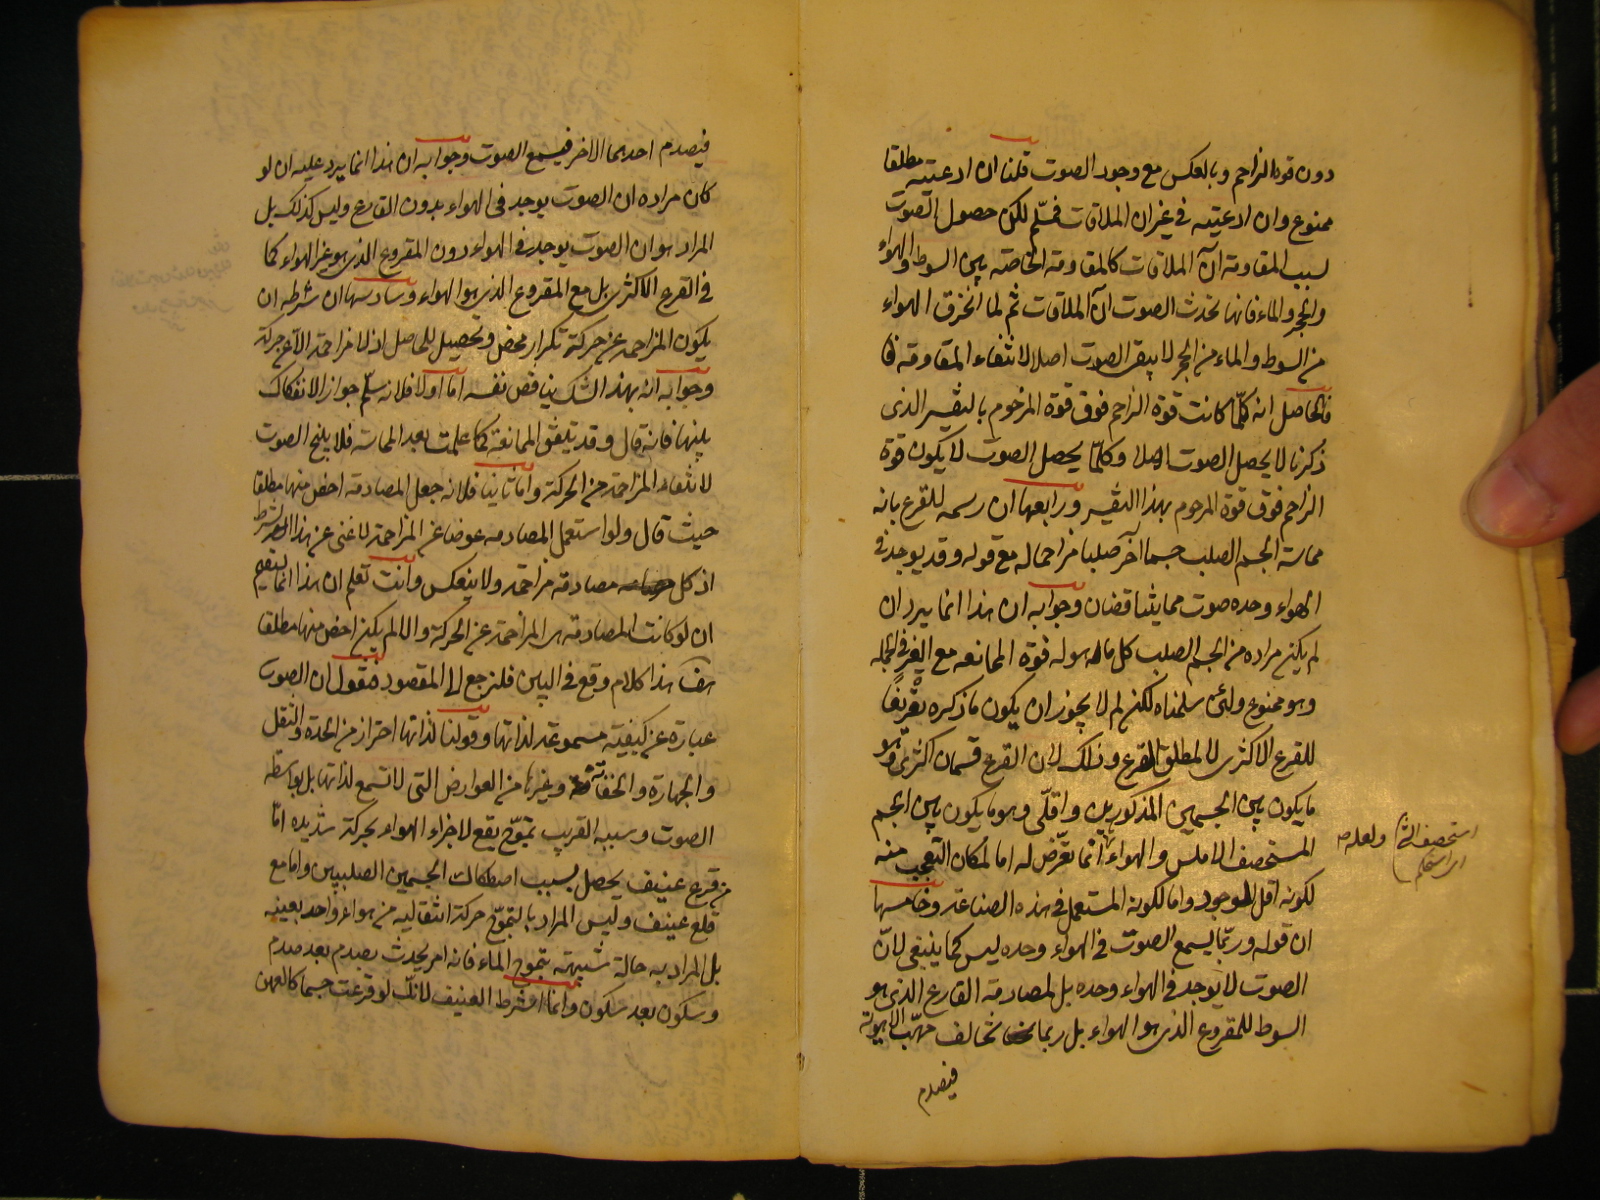 دون قوة الزاحم وبالعكس مع وجود الصوت قلنا ان ادعيته مطلقا
ممنوع وان ادعيته في غير ان الملاقات فمسلم لكن حصول الصوت
بسبب المقاومة آن الملاقات كالمقاومة الخاصة بين السوط والهواء
والحجر والماء فانها تحدث الصوت آن الملاقات ثم لما انخرق الهواء
من السوط والماء من الحجر لا يبقى الصوت اصلا لانتفاء المقاومة
فالحاصل انه كلما كانت قوة الزاحم فوق قوة المزحوم بالتفسير الذي
ذكرنا لا يحصل الصوت اصلا وكلما يحصل الصوت لا يكون قوة
الزاحم فوق قوة المزحوم بهذا التفسير ورابعها ان رسمه للقرع بانه
مماسة الجسم الصلب جسما آخر صلبا مزاحما له مع قوله وقد يوجد في
الهواء وحده صوت مما يتناقضان وجوابه ان هذا انما يرد ان
لم يكن مراده من الجسم الصلب كل ما هو له قوة الممانعة مع الغير في الجملة
وهو ممنوع ولئن سلمناه لكن لم لا يجوز ان يكون ما ذكره تعريفا
للقرع الاكثرى لا لمطلق القرع وذلك لان القرع قسمان اكثرى وهو
ما يكون بين الجسمين المذكورين واقلى وهو ما يكون بين الجسم
المستحصف الاملس والهواء انما تعرض له اما لمكان التعجب منه
لكونه اقل الوجود واما لكونه المستعمل في هذه الصناعة وخامسها
ان قوله وربما يسمع الصوت في الهواء وحده ليس كما ينبغي لان
الصوت لا يوجد في الهواء وحده بل لمصادمة القارع الذي هو
السوط للمقروع الذي هو الهواء بل ربما تخالف مهب الاهوية
فيصدم
استحصف الشئ
اى استحكم
ولعله
فيصدم احدهما الاخر فيسمع الصوت وجوابه ان هذا انما يرد عليه ان لو
كان مراده ان الصوت يوجد في الهواء بدون القارع وليس كذلك بل
المراد هو ان الصوت يوجد في الهواء دون المقروع الذي هو غير الهواء كما
في القرع الاكثرى بل مع المقروع الذي هو الهواء وسادسها ان شرطه ان
يكون المزاحمة عن حركة تكرار محض وتحصيل للحاصل اذ لا مزاحمة الا عن حركة
وجوابه انه بهذا الشك يناقض نفسه اما اولا فلانه سلم جواز الانفكاك
بينهما فانه قال وقد يتفق الممانعة كما علمت بعد المماسة فلا ينتج الصوت
لانتفاء المزاحمة عن الحركة واما ثانيا فلانه جعل المصادمة اخص منها مطلقا
حيث قال ولو استعمل المصادمة عوضا عن المزاحمة لاغنى عن هذا الشرط
اذ كل مصادمة مزاحمة ولا ينعكس وانت تعلم ان هذا انما يستقيم
ان لو كانت المصادمة هى المزاحمة عن الحركة والا لم يكن اخص منها مطلقا
هف هذا كلام وقع في البين فلنرجع الى المقصود فنقول ان الصوت
عبارة عن كيفية مسموعة لذاتها وقولنا لذاتها احتراز من الحدة والثقل
والجهارة والخفاتة وغيرها من العوارض التي لا تسمع لذاتها بل بواسطة
الصوت وسببه القريب تموج يقع لاجزاء الهواء بحركة شديدة اما
من قرع عنيف يحصل بسبب اصطكاك الجسمين الصلبين واما مع
قلع عنيف وليس المراد بالتموج حركة انتقالية من هواء واحد بعينه
بل المراد به حالة شبيهة بتموج الماء فانه امر يحدث بصدم بعد صدم
وسكون بعد سكون وانما اشترط العنيف لانك لو قرعت جسما كالعهن